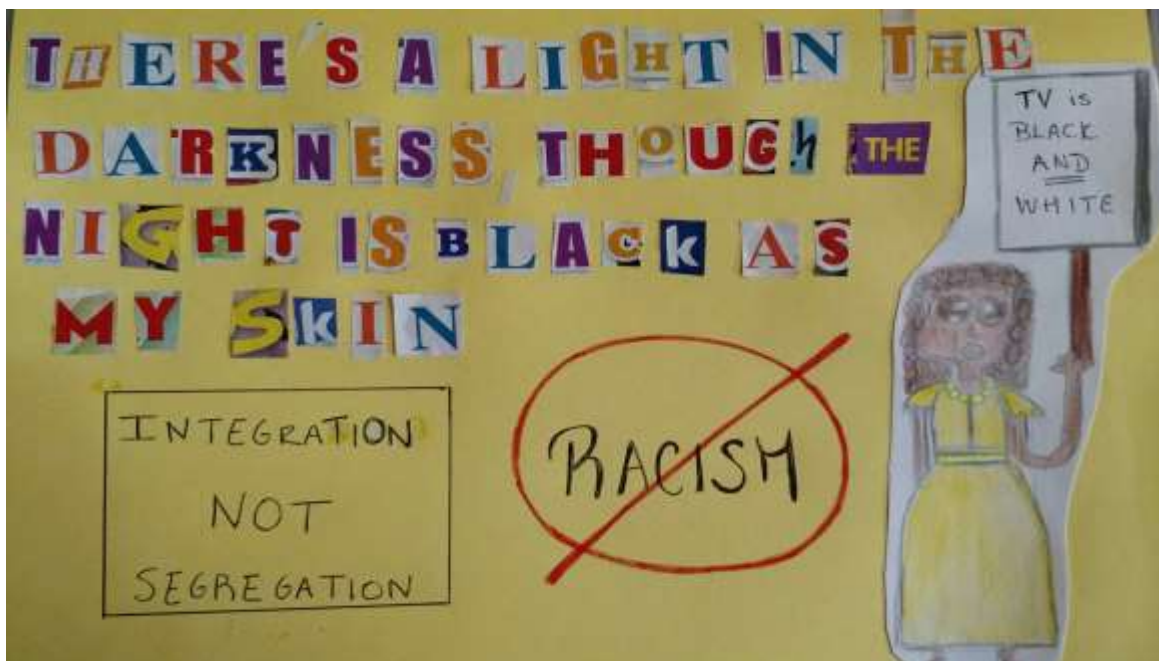 THERE'S A LIGHT IN THE
DARKNESS, THOUGH THE
NIGHT IS BLACK AS
MY SKIN
TV is
BLACK
AND
WHITE
INTEGRATION
NOT
SEGREGATION
RACISM